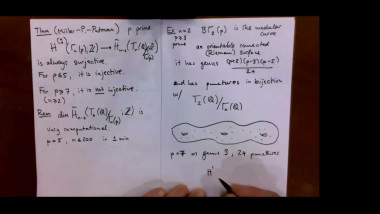 Thm (Miller-P.-Putman) p prime
H^{ν(n)}(Γ_n(p); Z) → H̃_{n-2}(T_n(Q)/Γ_n(p); Z)
is always surjective.
For p≤5, it is injective.
For p≥7, it is not injective.
(n≥2)
Rem dim H̃_{n-2}(T_n(Q)/Γ_n(p); Z) is
very computational.
p = 5, n ≤ 200 in 1 min
Ex n=2
BΓ_2(p) is the modular
curve
prime
an orientable connected
(Riemann) surface
it has genus (p+2)(p-3)(p-5)/24
and has punctures in bijection
w/ T_2(Q)/Γ_2(p)
∞ ∞ ∞
p=7 ⇒ genus 3, 24 punctures
H^1